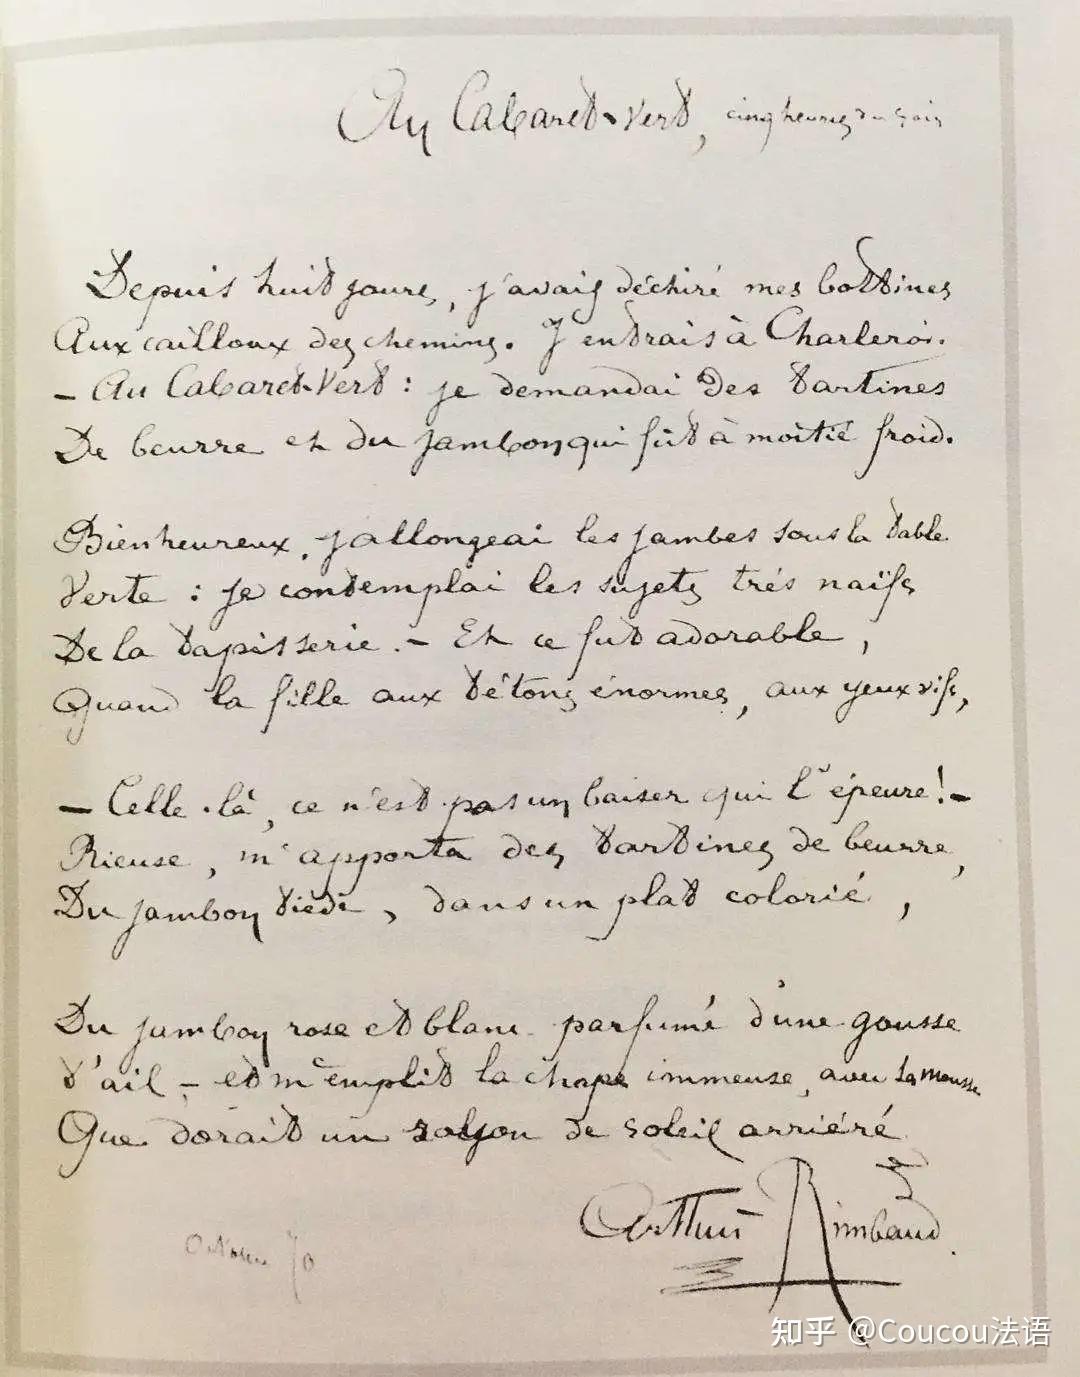 Au Cabaret-Vert, cinq heures du soir
Depuis huit jours, j'avais déchiré mes bottines
Aux cailloux des chemins. J'entrais à Charleroi.
– Au Cabaret-Vert : je demandai des tartines
De beurre et du jambon qui fût à moitié froid.
Bienheureux, j'allongeai les jambes sous la table
Verte : je contemplai les sujets très naïfs
De la tapisserie. – Et ce fut adorable,
Quand la fille aux tétons énormes, aux yeux vifs,
– Celle-là, ce n'est pas un baiser qui l'épeure ! –
Rieuse, m'apporta des tartines de beurre,
Du jambon tiède, dans un plat colorié,
Du jambon rose et blanc parfumé d'une gousse
D'ail, – et m'emplit la chope immense, avec sa mousse
Que dorait un rayon de soleil arriéré
Arthur Rimbaud
Octobre 70
知乎 @Coucou法语